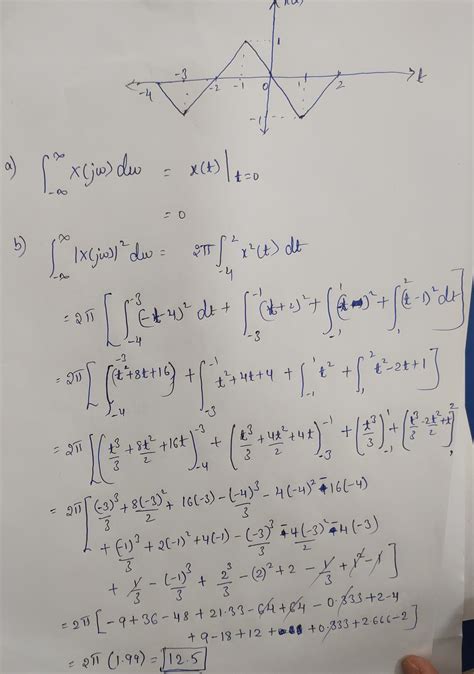 x(t)
1
-4 -3 -2 -1 0 1 2 t
-1
a) ∫_{-∞}^{∞} X(jω) dω = x(t)|_{t=0}
= 0
b) ∫_{-∞}^{∞} |X(jω)|² dω = 2π ∫_{-4}^{2} x²(t) dt
= 2π [ ∫_{-4}^{-3} (-t-4)² dt + ∫_{-3}^{-1} (t+2)² + ∫_{-1}^{1} ( )² + ∫_{1}^{2} (t-1)² dt ]
= 2π [ ∫_{-4}^{-3} (t²+8t+16) + ∫_{-3}^{-1} t²+4t+4 + ∫_{-1}^{1} t² + ∫_{1}^{2} t²-2t+1 ]
= 2π [ (t³/3 + 8t²/2 + 16t)_{-4}^{-3} + (t³/3 + 4t²/2 + 4t)_{-3}^{-1} + (t³/3)_{-1}^{1} + (t³/3 - 2t²/2 + t)_{1}^{2}
= 2π [ (-3)³/3 + 8(-3)²/2 + 16(-3) - (-4)³/3 - 4(-4)² - 16(-4)
+ (-1)³/3 + 2(-1)² + 4(-1) - (-3)³/3 - 4(-3)²/2 - 4(-3)
+ 1/3 - (-1)³/3 + 2³/3 - (2)² + 2 - 1/3 + 1² - 1 ]
= 2π [ -9 + 36 - 48 + 21.33 - 64 + 64 - 0.333 + 2 - 4
+ 9 - 18 + 12 + 0.333 + 2.666 - 2 ]
= 2π (1.99) = 12.5